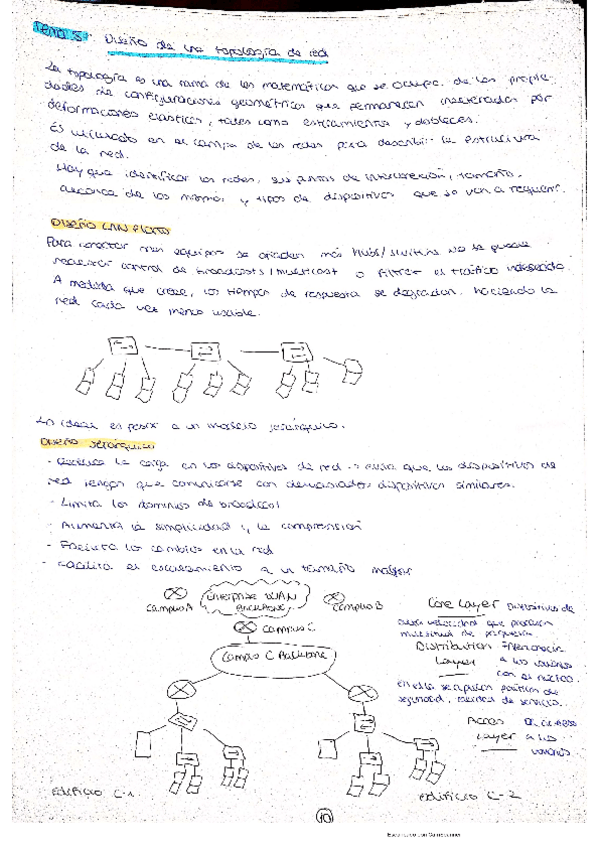 TEMA 5: Diseño de una topología de red
La topología es una rama de las matemáticas que se ocupa de las propie-
dades de configuraciones geométricas que permanecen inalteradas por
deformaciones elásticas, tales como estiramientos y dobleces.
Es utilizado en el campo de las redes para describir la estructura
de la red.
Hay que identificar las redes, sus puntos de interconexión, tamaño,
alcance de las mismas y tipos de dispositivos que se van a requerir.
Diseño LAN Plano
Para conectar más equipos se añaden más Hubs/Switchs no se puede
realizar control de broadcasts/multicast o filtrar el tráfico indeseado.
A medida que crece, los tiempos de respuesta se degradan, haciendo la
red cada vez menos usable.
Lo ideal es pasar a un modelo jerárquico.
Diseño Jerárquico
- Reduce la carga en los dispositivos de red -> evita que los dispositivos de
red tengan que comunicarse con demasiados dispositivos similares.
- Limita los dominios de broadcast
- Aumenta la simplicidad y la comprensión
- Facilita los cambios en la red
- Facilita el escalamiento a un tamaño mayor
Campus A
Enterprise WAN
Backbone
Campus B
Campus C
Campus C Backbone
Core Layer Dispositivos de
alta velocidad que
Distribution Interconecta
Layer a los usuarios
con el núcleo.
en ella se aplican políticas de
seguridad, de servicios.
Acces
Layer a los
usuarios
Edificio C-1
Edificio C-2
10
Escaneado con CamScanner